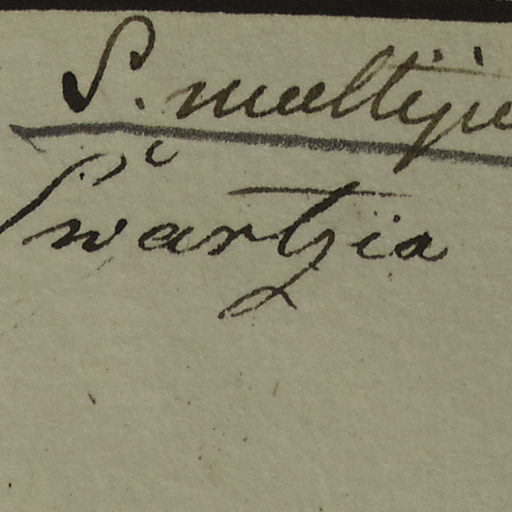 S. multiju
Swartzia